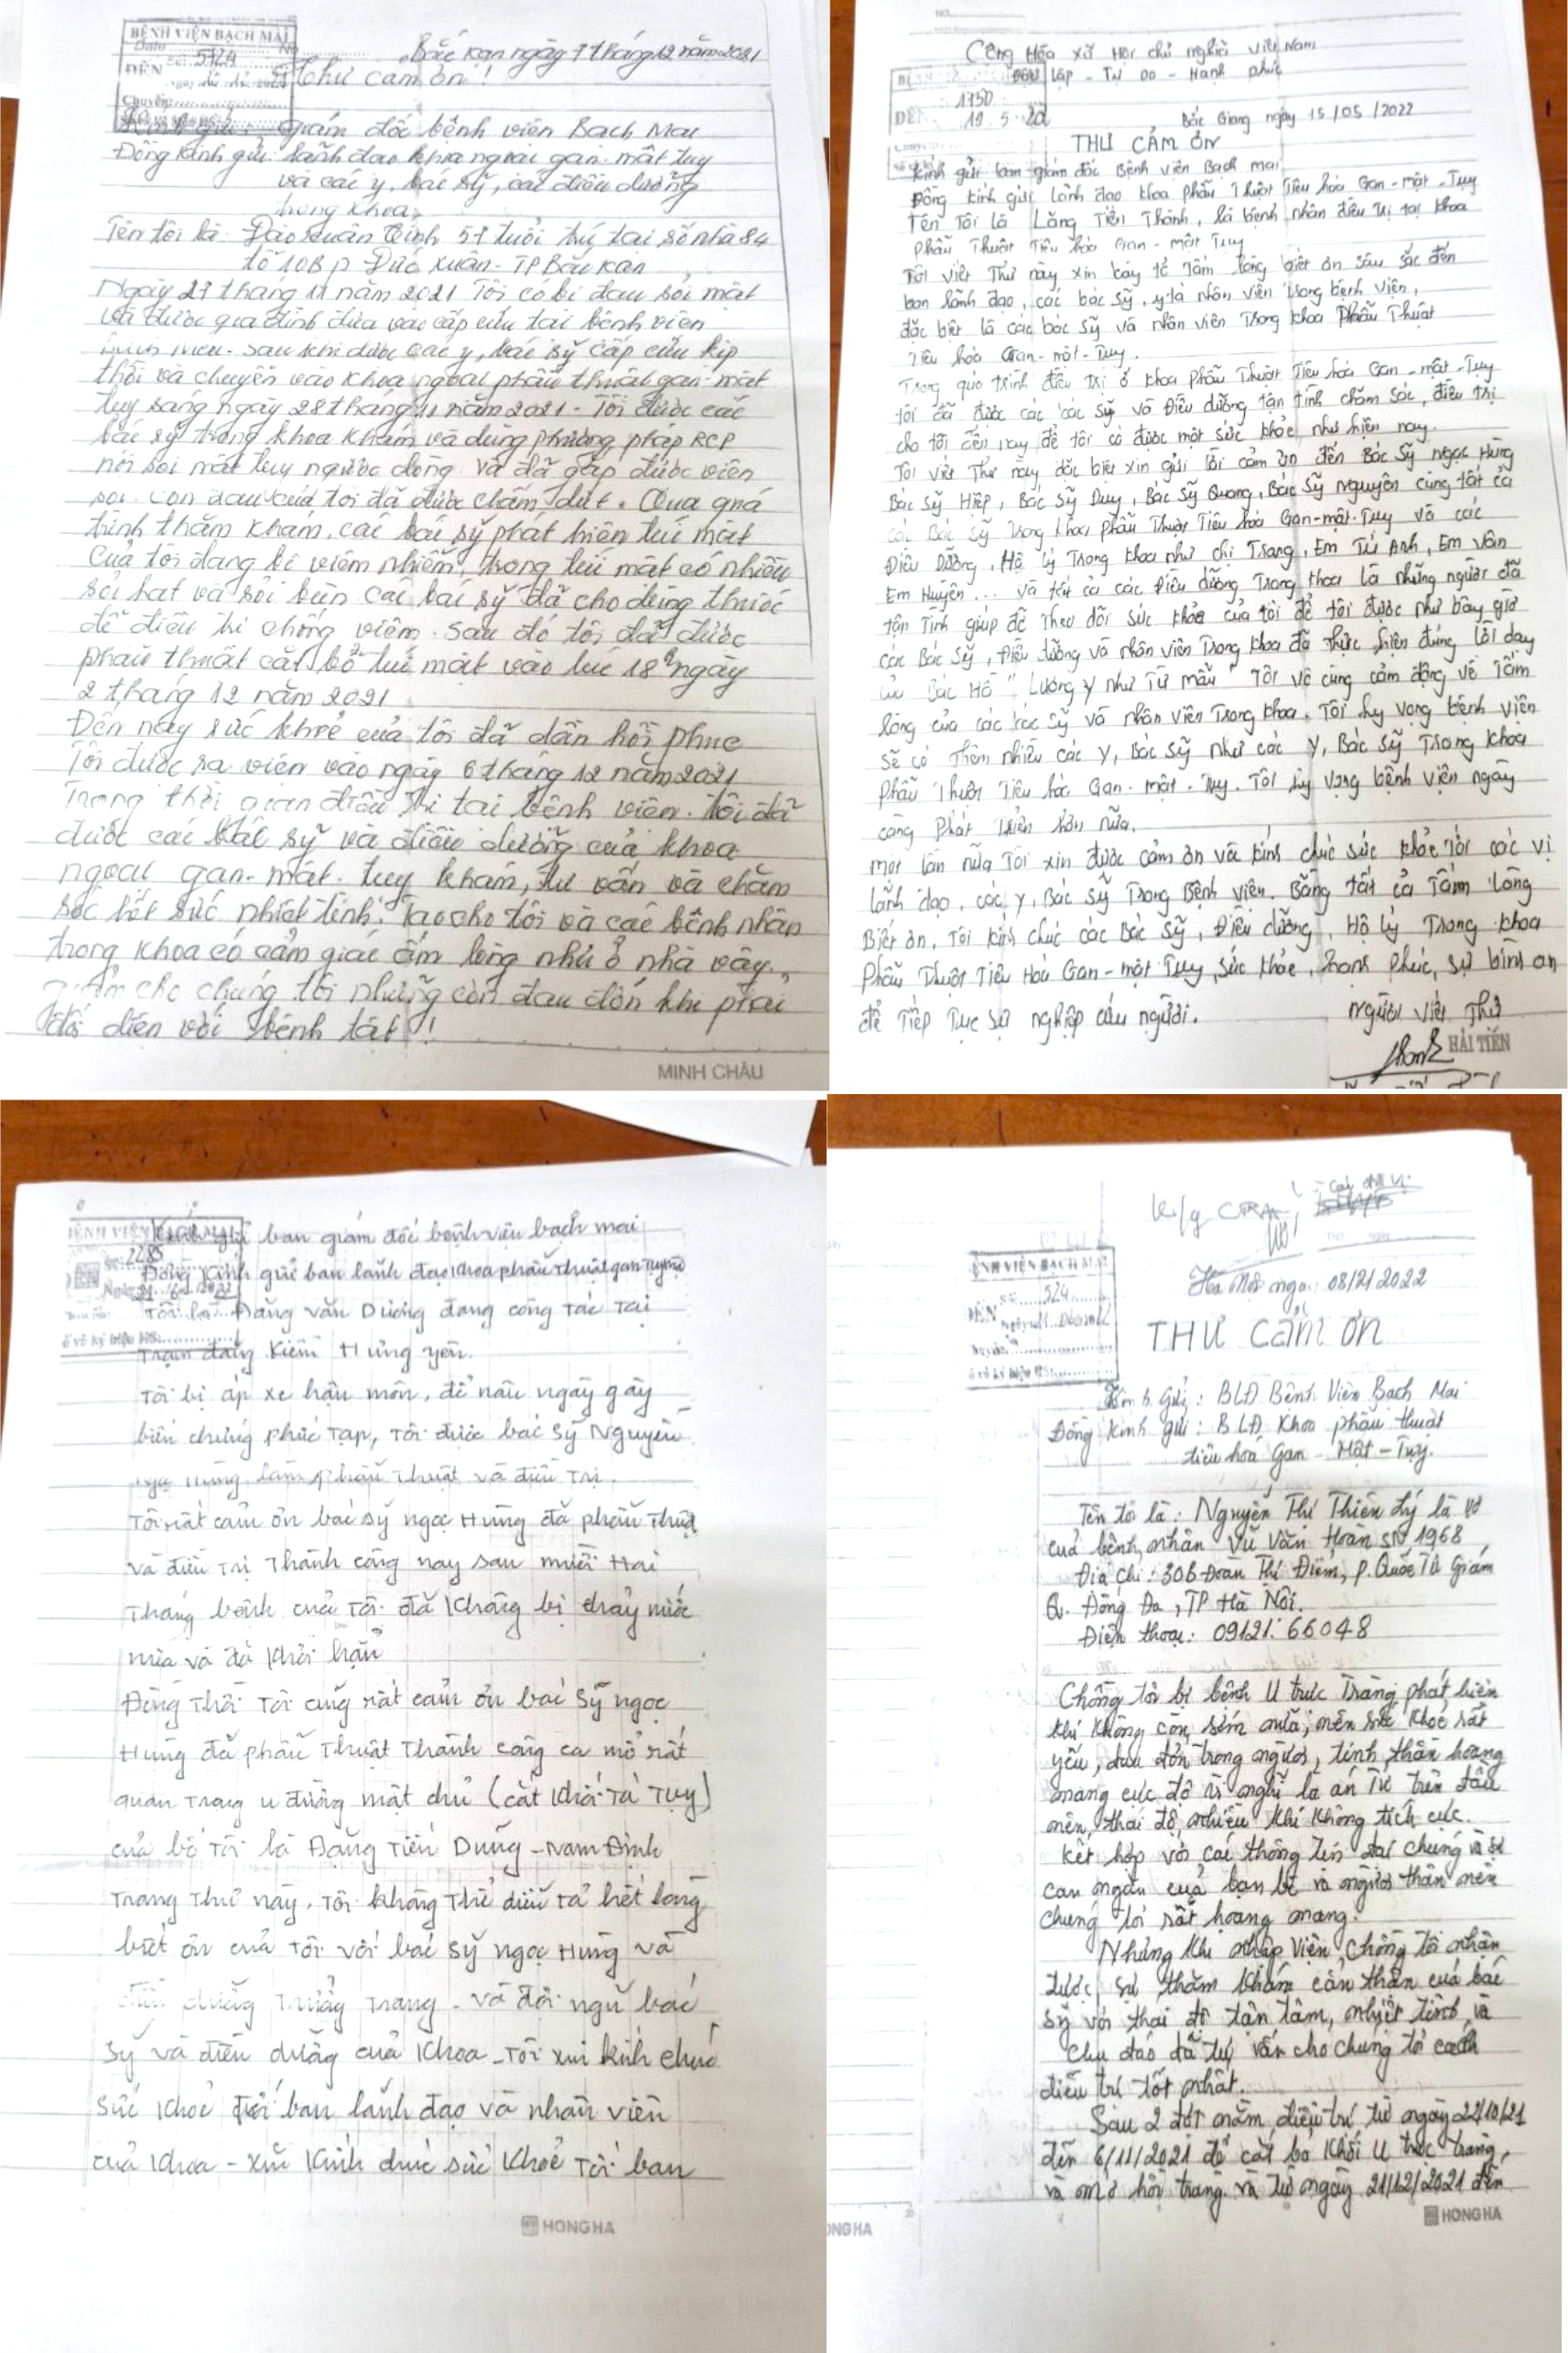 BỆNH VIỆN BẠCH MAI
ĐẾN
Bắc Kạn ngày 7 tháng 12 năm 2021
Thư cảm ơn !
Kính gửi: Giám đốc bệnh viện Bạch Mai
Đồng kính gửi lãnh đạo khoa ngoại gan-mật tụy
và các y, bác sỹ, các điều dưỡng
trong khoa.
Tên tôi là 57 tuổi trú tại số nhà 84
tổ 10B p Đức Xuân - TP Bắc Kạn
Ngày 27 tháng 11 năm 2021 Tôi có bị đau sỏi mật
và được gia đình đưa vào cấp cứu tại bệnh viện
Bạch Mai. Sau khi được các y, bác sỹ cấp cứu kịp
thời và chuyển vào khoa ngoại phẫu thuật gan-mật
tụy sáng ngày 28 tháng 11 năm 2021 - Tôi được các
bác sỹ trong khoa khám và dùng phương pháp RCP
nội soi mật tụy ngược dòng và đã gắp được viên
sỏi. Cơn đau của tôi đã được chấm dứt. Qua quá
trình thăm khám, các bác sỹ phát hiện túi mật
của tôi đang bị viêm nhiễm, trong túi mật có nhiều
sỏi hạt và sỏi bùn các bác sỹ đã cho dùng thuốc
để điều trị chống viêm. Sau đó tôi đã được
phẫu thuật cắt bỏ túi mật vào lúc 18h ngày
2 tháng 12 năm 2021
Đến nay sức khoẻ của tôi đã dần hồi phục
Tôi được ra viện vào ngày 6 tháng 12 năm 2021
Trong thời gian điều trị tại bệnh viện. Tôi đã
được các bác sỹ và điều dưỡng của khoa
ngoại gan-mật-tụy khám, tư vấn và chăm
sóc hết sức nhiệt tình. Tạo cho tôi và các bệnh nhân
trong khoa có cảm giác ấm lòng như ở nhà vậy.
giảm cho chúng tôi những cơn đau đớn khi phải
đối diện với bệnh tật !
MINH CHÂU
Cộng Hòa xã Hội chủ nghĩa Việt Nam
Độc lập - Tự Do - Hạnh phúc
ĐẾN 1750
19.5.22
Bắc Giang ngày 15/05/2022
THƯ CẢM ƠN
Kính gửi ban giám đốc Bệnh viện Bạch mai
Đồng kính gửi Lãnh đạo khoa Phẫu Thuật Tiêu hóa Gan-mật-Tụy
Tên Tôi là Lăng Tiến Thành, là bệnh nhân điều trị tại khoa
Phẫu Thuật Tiêu hóa Gan-mật Tụy
Tôi viết Thư này xin bày tỏ Tấm lòng biết ơn sâu sắc đến
ban lãnh đạo, các bác sỹ, y tá nhân viên Trong bệnh viện,
đặc biệt là các bác sỹ và nhân viên Trong khoa Phẫu Thuật
Tiêu hóa Gan-mật-Tụy.
Trong quá trình điều trị ở khoa Phẫu Thuật Tiêu hóa Gan-mật-Tụy
tôi đã được các bác sỹ và Điều dưỡng tận tình chăm sóc, điều trị
cho tôi đến nay để tôi có được một sức khỏe như hiện nay.
Tôi viết Thư này đặc biệt xin gửi lời cảm ơn đến Bác Sỹ Ngọc Hùng
Bác Sỹ Hiệp, Bác Sỹ Duy, Bác Sỹ Quang, Bác Sỹ Nguyên cùng tất cả
các Bác Sỹ Trong khoa Phẫu Thuật Tiêu hóa Gan-mật-Tụy và các
Điều Dưỡng, Hộ lý Trong khoa như chị Trang, Em Tú Anh, Em Vân
Em Huyền... và tất cả các Điều dưỡng Trong khoa là những người đã
tận Tình giúp đỡ Theo dõi sức khỏe của tôi để tôi được như bây giờ
các Bác Sỹ, Điều dưỡng và nhân viên Trong khoa đã Thực hiện đúng lời dạy
của Bác Hồ "Lương y như Từ mẫu" Tôi vô cùng cảm động về Tấm
lòng của các bác sỹ và nhân viên Trong khoa. Tôi hy vọng bệnh viện
sẽ có Thêm nhiều các y, Bác Sỹ như các y, Bác Sỹ Trong khoa
Phẫu Thuật Tiêu hóa Gan-mật-Tụy. Tôi hy vọng bệnh viện ngày
càng Phát Triển hơn nữa.
Một lần nữa Tôi xin được cảm ơn và kính chúc sức khỏe tới các vị
lãnh đạo, các y, Bác Sỹ Trong Bệnh viện. Bằng tất cả Tấm lòng
Biết ơn, Tôi kính chúc các Bác Sỹ, Điều dưỡng, Hộ lý Trong khoa
Phẫu Thuật Tiêu Hóa Gan-mật Tụy, sức khỏe, hạnh Phúc, sự bình an
để Tiếp Tục sự nghiệp cứu người.
Người viết Thư
HẢI TIẾN
BỆNH VIỆN BẠCH MAI
2285
Kính gửi ban giám đốc bệnh viện bạch mai
Đồng kính gửi ban lãnh đạo khoa phẫu thuật gan tụy mật
Tôi là Đặng Văn Dương đang công tác tại
Trạm đăng kiểm Hưng yên.
Tôi bị áp xe hậu môn, để lâu ngày gây
biến chứng phức tạp, Tôi được bác sỹ Nguyễn
Ngọc Hùng làm phẫu thuật và điều trị.
Tôi rất cảm ơn bác sỹ ngọc Hùng đã phẫu thuật
và điều trị Thành công nay sau mười Hai
Tháng bệnh của Tôi đã không bị chảy nước
mủa và đã khỏi hẳn
Đồng Thời Tôi cũng rất cảm ơn bác sỹ ngọc
Hùng đã phẫu Thuật Thành công ca mổ rất
quan Trọng u đường mật chủ (cắt khối Tá Tụy)
của bố Tôi là Đặng Tiến Dũng - Nam Định
Trong Thư này, Tôi không Thể diễu tả hết lòng
biết ơn của Tôi với bác sỹ ngọc Hùng và
điều dưỡng Trưởng Trang - và đội ngũ bác
sỹ và điều dưỡng của khoa - Tôi xin kính chúc
sức khoẻ tới ban lãnh đạo và nhân viên
của khoa - xin kính chúc sức khoẻ Tới ban
HONG HA
BỆNH VIỆN BẠCH MAI
ĐẾN 524
Hà Nội ngày: 08/2/2022
THƯ CẢM ƠN
Kính Gửi: BLĐ Bệnh Viện Bạch Mai
Đồng kính gửi: BLĐ Khoa phẫu thuật
tiêu hoá Gan - Mật - Tụy.
Tên tôi là: Nguyễn Thị Thiên Lý là vợ
của bệnh nhân Vũ Văn Hoàn SN 1968
Địa chỉ: 30B Đoàn Thị Điểm, P. Quốc Tử Giám
Q. Đống Đa, TP Hà Nội.
Điện thoại: 09121.66048
Chồng tôi bị bệnh U trực Tràng phát hiện
khi không còn sớm nữa, nên sức khoẻ rất
yếu, đau đớn trong người, tinh thần hoang
mang cực độ vì nghĩ là án Tử trên đầu
nên thái độ nhiều khi không tích cực.
Kết hợp với các thông tin đại chúng và sự
can ngăn của bạn bè và người thân nên
chúng tôi rất hoang mang.
Nhưng khi nhập viện, chồng tôi nhận
được sự thăm khám cẩn thận của bác
sỹ với thái độ tận tâm, nhiệt tình và
chu đáo đã tư vấn cho chúng tôi cách
điều trị tốt nhất.
Sau 2 đợt nằm điều trị từ ngày 22/10/21
đến 6/11/2021 để cắt bỏ khối U trực tràng,
và mở hồi tràng và từ ngày 21/12/2021 đến
HONG HA
NG HA